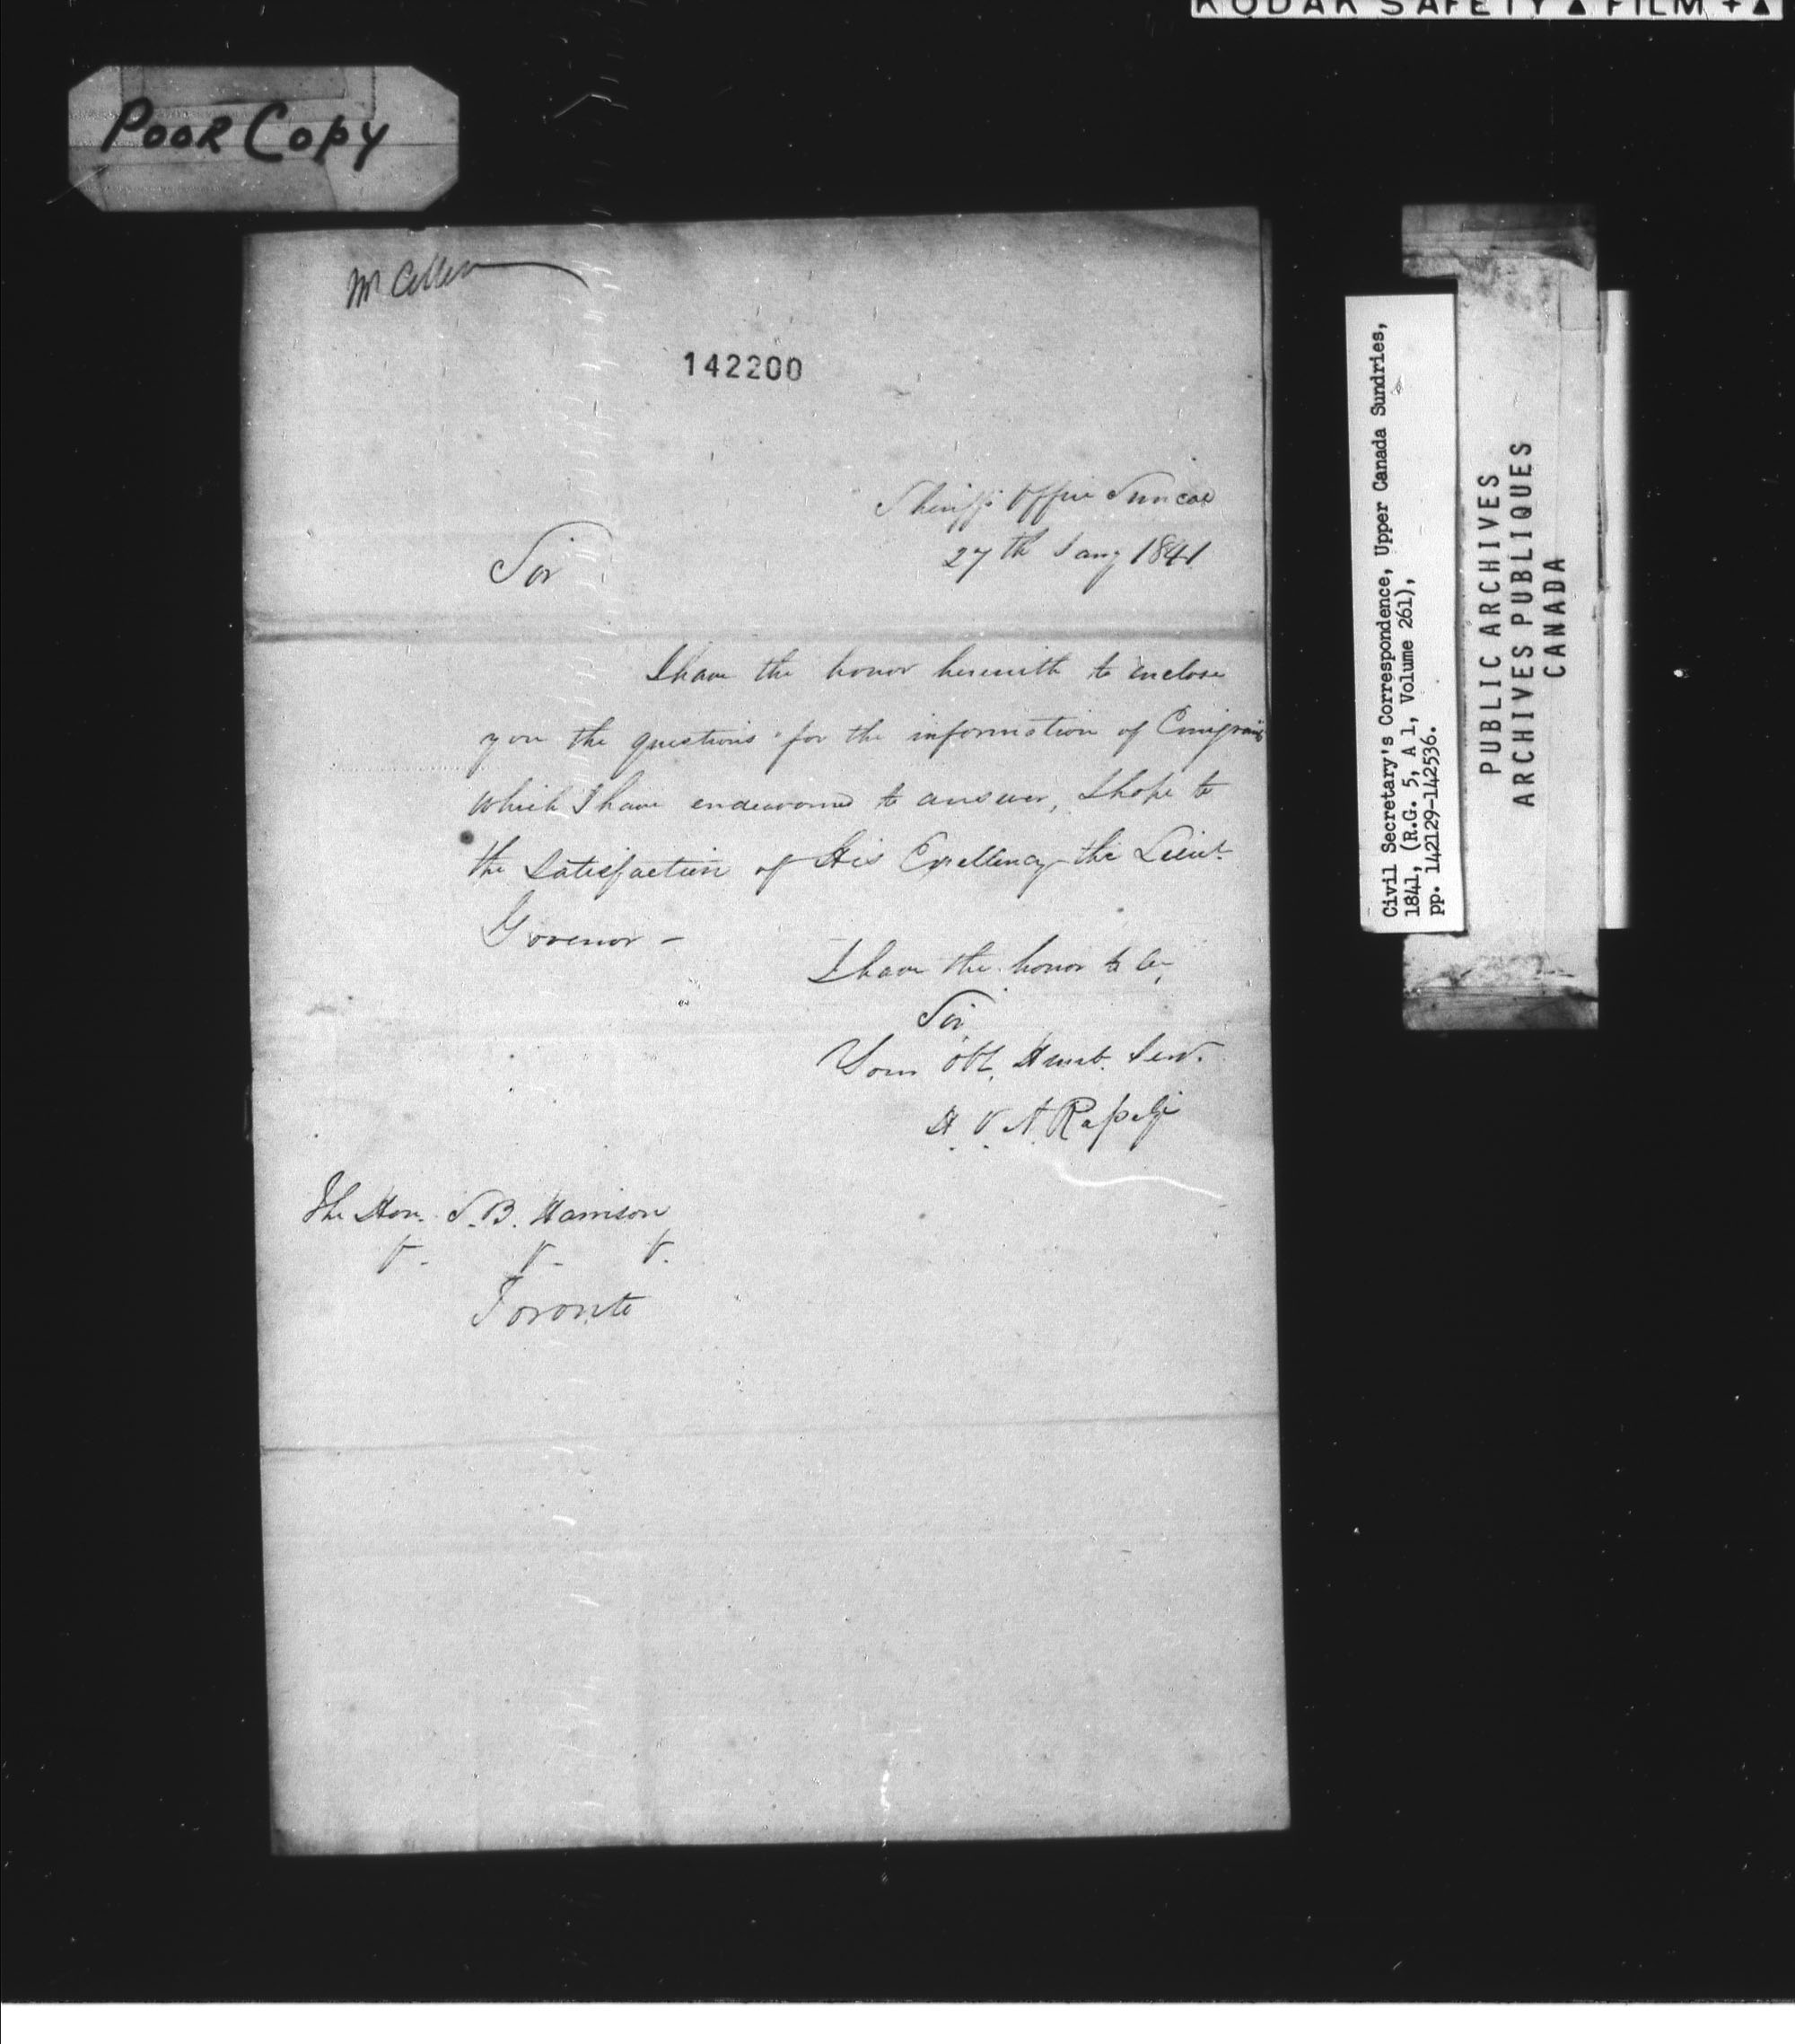 KODAK SAFETY ▲ FILM + ▲
POOR COPY
142200
Sheriffs Office Simcoe
27th Jany 1841
Sir
I have the honor herewith to enclose
you the questions for the information of Emigrants
which I have endeavoured to answer, I hope to
the Satisfaction of His Excellency the Lieut.
Govenor —
I have the honor to be,
Sir
Your Obt. Humb. Serv.
H. V. A. Rapelje
The Hon. S. B. Harrison
V. V. V.
Toronto
Civil Secretary's Correspondence, Upper Canada Sundries,
1841, (R.G. 5, A 1, Volume 261),
pp. 142129-142536.
PUBLIC ARCHIVES
ARCHIVES PUBLIQUES
CANADA